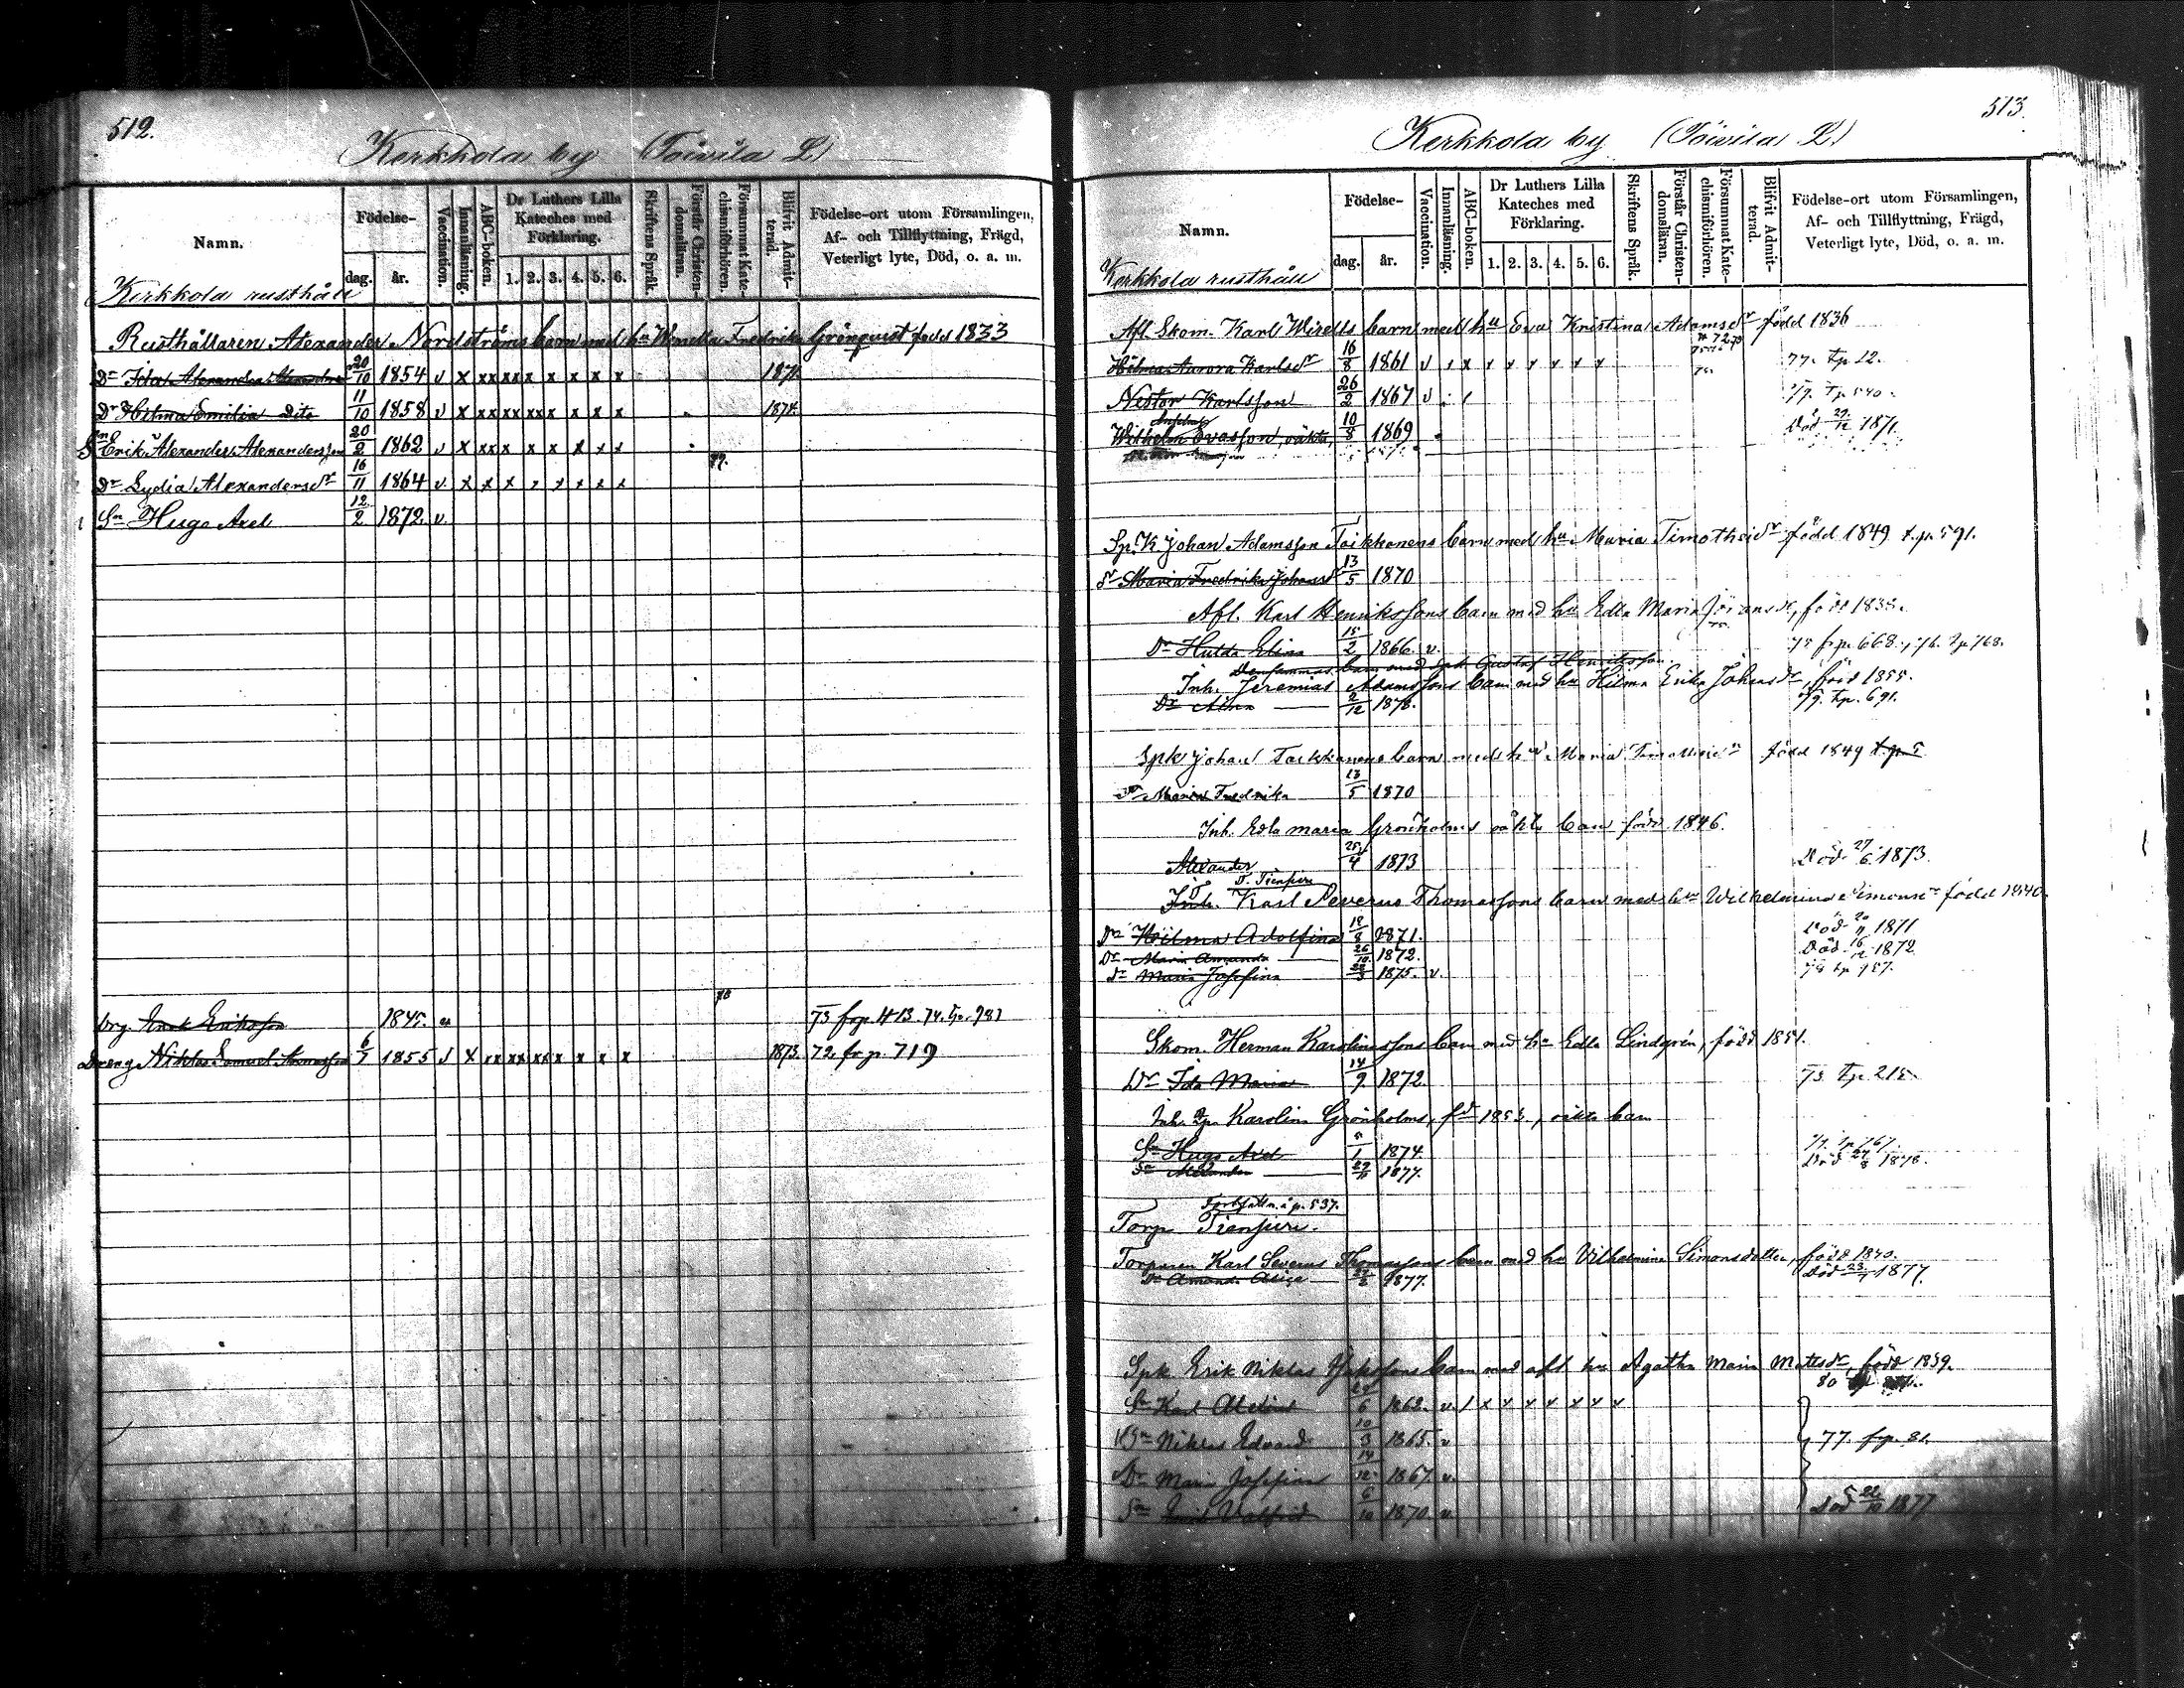 512.
Kerkkola by (Toivila L)
Namn.
Födelse-
dag.
år.
Vaccination.
Innanläsning.
ABC-boken.
Dr Luthers Lilla Kateches med Förklaring.
1. 2. 3. 4. 5. 6.
Skriftens Språk.
Förstår Christendomsläran.
Försummat Katechismiförhören.
Blifvit Admitterad.
Födelse-ort utom Församlingen, Af- och Tillflyttning, Frägd, Veterligt lyte, Död, o. a. m.
Kerkkola rusthåll
Rusthållaren Alexander Nordströms barn med hu Fredrika Grönqvist född 1833
Dr Ida Alexandra 20/10 1854 v x xx xx x x x x x 1871
Dr Hilma Emilia Dito 11/10 1858 v x xx xx xx x x x x 1874.
Sn Erik Alexander Alexandersson 20/2 1862 v x xx x x x x x x
79.
Dr Lydia Alexandersdr 16/11 1864 v x x x x x x x x x
Sn Hugo Axel 12/2 1872 v
Drg. Erik Eriksson 1845. 73 frp. 413. 74. tp. 981
Dreng Niklas Samuel 6/7 1855 v x xx xx xx x x x x 1873. 72. fr p. 719
513.
Kerkkola by (Toivila L)
Namn.
Födelse-
dag.
år.
Vaccination.
Innanläsning.
ABC-boken.
Dr Luthers Lilla Kateches med Förklaring.
1. 2. 3. 4. 5. 6.
Skriftens Språk.
Förstår Christendomsläran.
Försummat Katechismiförhören.
Blifvit Admitterad.
Födelse-ort utom Församlingen, Af- och Tillflyttning, Frägd, Veterligt lyte, Död, o. a. m.
Kerkkola rusthåll
Afl. Skom. Karl Wirells barn med hu Eva Kristina Adamsdr född 1836
Hilma Aurora Karlsdr 16/8 1861 v 77. tp 22.
Nestor Karlsson 26/2 1867 v tp 540.
Wilhelm Evasson, oäkta, 10/8 1869 Död 1871.
Spk Johan Adamsson Taikkanens barn med hu Maria Timotheidr född 1849 t.p. 591.
dr Maria Fredrika Johansdr 13/5 1870
Afl. Karl Henrikssons barn med hu Edla Maria född 1838.
Dr Hulda Elina 15/2 1866. v. 75 fr p. 668.
Densammas barn med spk Gustaf Henriksson
Inh. Jeremias Adamssons barn med hu Hilma Erika Johansdr, född 1855.
Dr Alma 2/12 1878. 79. tp. 691.
Spk Johan Taikkanens barn med hu Maria Timotheidr född 1849 t.p. 5
dr Maria Fredrika 13/5 1870
Inh. Edla Maria Grönholms oäkta barn född 1846.
Alexander 25/4 1873 Död 27/6 1873.
T. Tienpieri
Inh. Karl Severus Thomassons barn med hu Wilhelmina Simonsdr född 1840.
Dr Hilma Adolfina 18/8 1871. Död 1871
Dr Maria Amanda 26/10 1872. Död 16/12 1872
dr Maria Josefina 1875. v.
Skom. Herman Karolinassons barn med hu Edla Lindgrén, född 1851.
Dr Ida Maria 14/9 1872 73. tp. 215.
Inh. Karolina Grönholms, fd 1853, oäkta barn
Sn Hugo Axel 1874 tp 767.
Sn Alexander 1877. Död 1878.
Fortsättn. å p. 537.
Torp Tienpieri.
Torparen Karl Severus Thomassons barn med hu Vilhelmina Simonsdotter, född 1840.
Dr Amanda 1877. Död 1877.
Spk Erik Niklas barn med afl. hu Agatha Maria Mattsdr, född 1839.
80
Sn Karl 6 1862. v.
Sn Niklas Edvard 10/3 1865. v 77. frp. 81.
Dr Maria Josefina 14/12 1867. v.
Sn Valfrid 6/10 1870 v. Död 22/10 1877